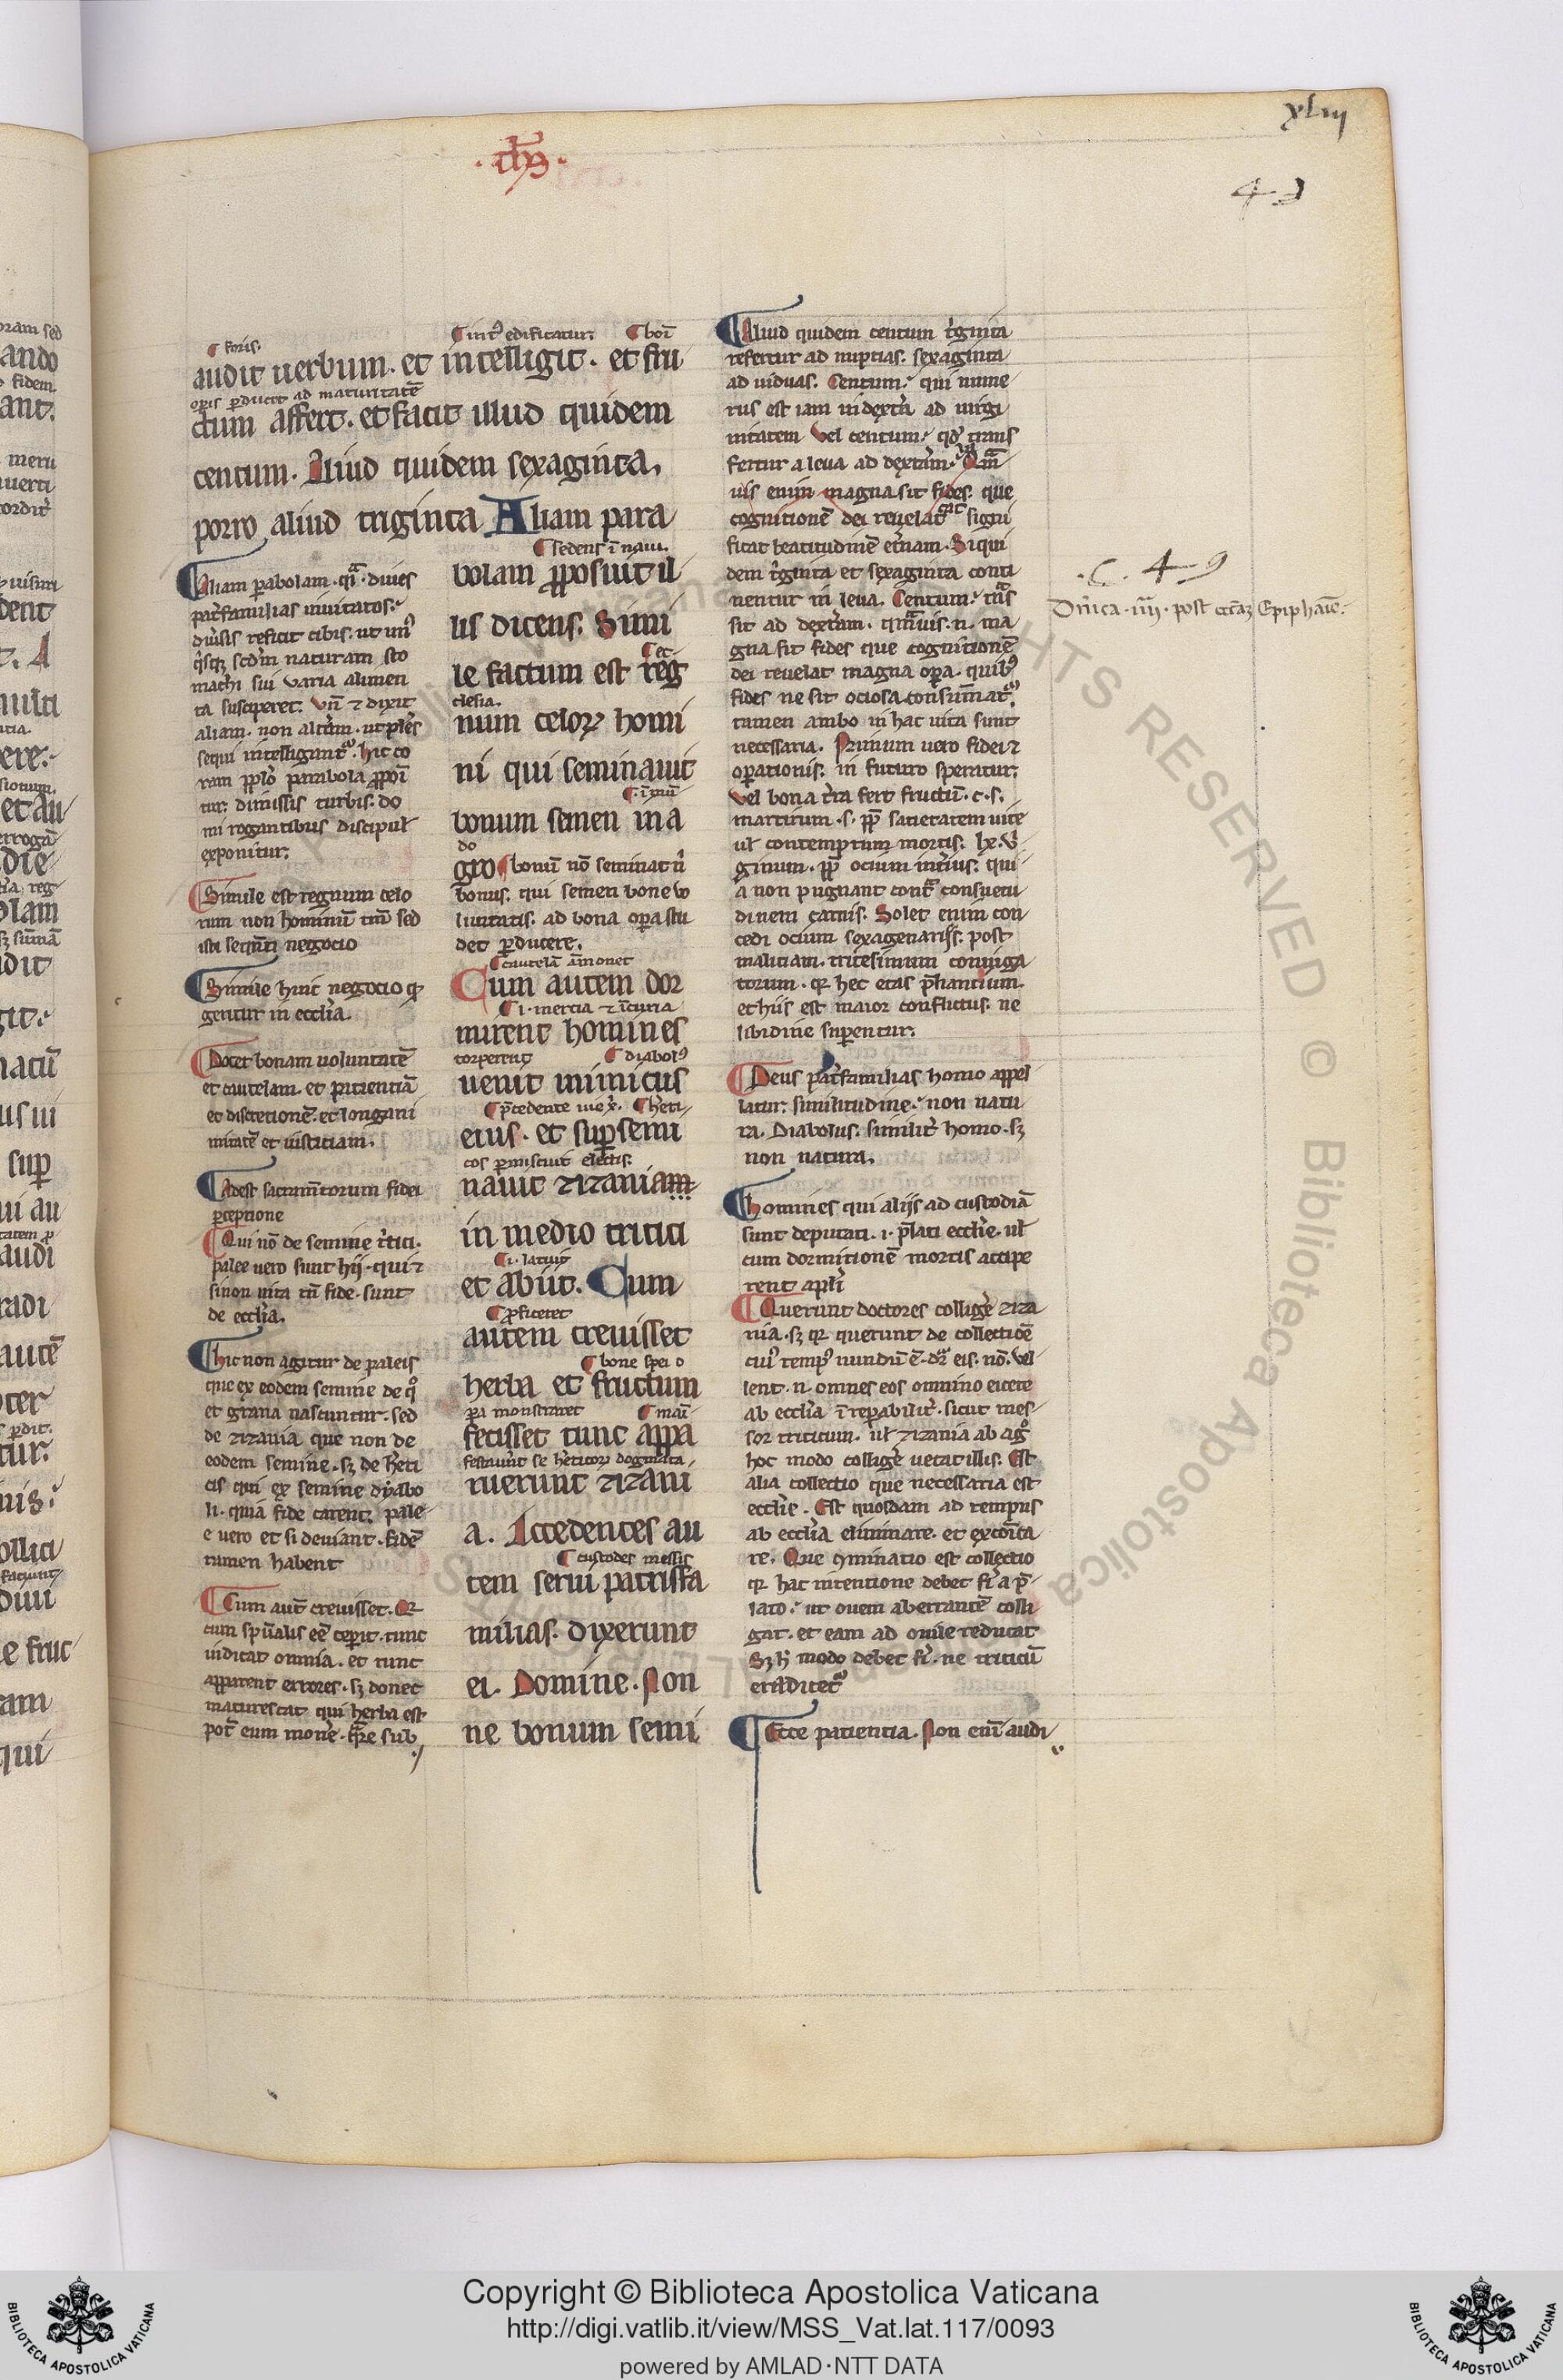 xliii
43
.thꝰ.
foris.
intꝰ edificatur.
boni
audit uerbum. et intelligit. et fru
operis perducit ad maturitatē
ctum affert. et facit illud quidem
centum. Aliud quidem sexaginta.
porro aliud triginta Aliam para
sedens ī naui.
bolam proposuit il
lis dicens. Simi
ec
le factum est reg
clesia.
num celoꝝ homi
ni qui seminauit
bonum semen in a
do
gro bonū nō seminat nͥ
bonus. qui semen bone uo
luntatis. ad bona opera stu
det perducere.
cautelā āmonet
Cum autem dor
.i. inercia ⁊ īcuria
mirent homines
torperent
diabolꝰ
uenit inimicus
heri
eius. et superſemi
cos permiscuit electis.
nauit zizaniam
in medio tritici
.i. latuit
et abiit. Cum
ꝓficeret
autem creuisset
bone spei o
herba et fructum
pera monstraret
mani
fecisset tunc appa
festauerunt se hereticoꝝ dogmata.
ruerunt zizani
a. Accedentes au
custodes messis
tem serui patrisfa
milias. dixerunt
ei. Domine. Non
ne bonum semi
Aliam parabolam. qͥa. diues
paterfamilias inuitatos.
diuersis reficit cibis. ut unꝰ
qͥsqꝫ scd̄m naturam sto
machi sui varia alimen
ta susciperet. vn̄ ⁊ dixit
aliam. non alteram. ut plēs
sequi intelligantur. hic co
ram pplo parabola ꝓponi
tur. dimissis turbis. do
mi rogantibus discipulis
exponitur.
Simile est regnum celo
rum non hominū tm̄ sed
isti sequenti negocio
Simile huic negocio
gentur in ecclīa.
Docet bonam uoluntatē
et cautelam. et pacienciā
et discretionē. et longani
mitatē et iusticiam.
Adest sacramentorum fidei
perceptione
Qui nō de semine tritici.
palee uero sunt hij. qui ⁊
si non uita tn̄ fide. sunt
de ecclīa.
hic non agitur de paleis
que ex eodem semine de qͦ
et grana nascuntur. sed
de zizania que non de
eodem semine. sꝫ de hereti
cis qui ex semine dyabo
li. quia fide carent. pale
e uero et si deuiant. fidē
tamen habent
Cum autē creuisset.
cum spūalis eē ceperit. tunc
iudicat omnia. et tunc
apparent errores. sꝫ donec
maturescat qui herba est
pot̄ eum monere. quare sub
Aliud quidem centum triginta
refertur ad nuptias. sexaginta
ad uiduas. Centum. qui nume
rus est iam in dextera ad uirgi
nitatem vel centum. qd̄ trans
fertur a leua ad dexteram. Qm̄
uis enim magna sit fides. que
cognitionē dei reuelat signi
ficat beatitudinē eternam. Siqui
dem triginta et sexaginta conti
nentur in leua. Centum. trans
sit ad dexteram. quāuis. n. ma
gna sit fides que cognitionē
dei reuelat magna opera. quibꝰ
fides ne sit ociosa consummatur
tamen ambo in hac uita sunt
necessaria. Primum uero fidei ⁊
operationis. in futuro speratur.
vel bona terra fert fructū. c. s.
martirum. s. ꝓp̄ sacietatem uite
ul̄ contemptum mortis. lx. vir
ginum. ꝓp̄ ocium interius. qui
a non pugnant contra consuetu
dinem carnis. Solet enim con
cedi ocium sexagenariis. post
maliciam. tricesimum coniuga
torum. qr hec etas preliantium.
et hiis est maior conflictus. ne
libidine superentur.
Deus paterfamilias homo appel
latur. similitudine. non natu
ra. Diabolus. similiter homo. sꝫ
non natura.
homines qui aliis ad custodiā
sunt deputati. .i. prelati ecclīe. ul̄
cum dormitionē mortis accipe
rent apli
Querunt doctores colligere ziza
nia. sꝫ qr querunt de collectiōe
cuiꝰ tempꝰ nundū ē. dr̄ eis. nō. vel
lent. n. omnes eos omnino eicere
ab ecclīa īreparabiliter. sicut mes
sor triticum. ul̄ zizania ab agͦ
hoc modo colligere uetat illis. Est
alia collectio que necessaria est
ecclīe. Est quosdam ad tempus
ab ecclīa eliminare. et excōica
re. Que ꝯminatio est collectio
qr hac intentione debet fieri a pre
lato. ut ouem aberrantē colli
gat. et eam ad ouile reducat
Sꝫ h̄ modo debet fieri. ne triticū
eradicetur
Ecce patientia. Non enī audi
.C. 49
Dn̄ica. iiii. post octaꝫ Epiphanie.
Copyright © Biblioteca Apostolica Vaticana
http://digi.vatlib.it/view/MSS_Vat.lat.117/0093
powered by AMLAD·NTT DATA
BIBLIOTECA APOSTOLICA VATICANA
BIBLIOTECA APOSTOLICA VATICANA